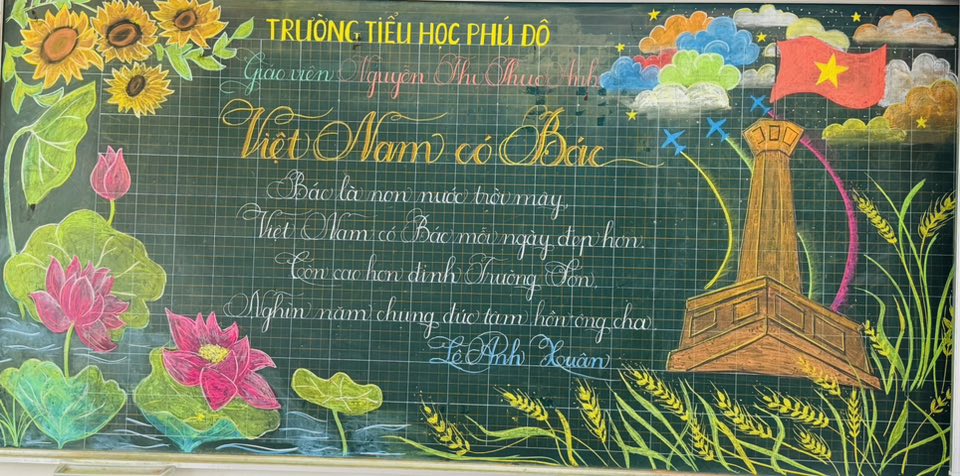 TRƯỜNG TIỂU HỌC PHÚ ĐÔ
Giáo viên Nguyễn Thị Thục Anh
Việt Nam có Bác
Bác là non nước trời mây,
Việt Nam có Bác mỗi ngày đẹp hơn.
Còn cao hơn đỉnh Trường Sơn.
Nghìn năm chung đúc tâm hồn ông cha.
Lê Anh Xuân